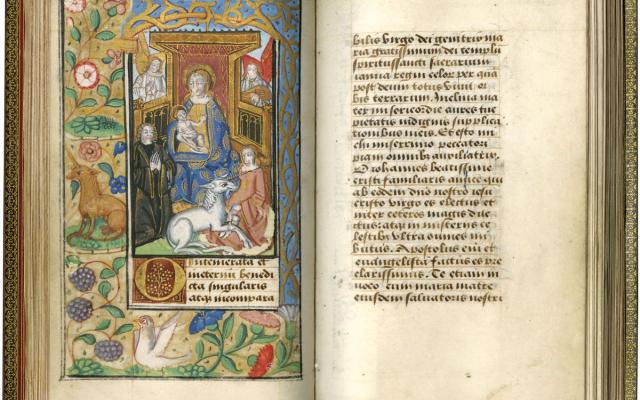 O intemerata et
in eternum benedi
cta singularis
atq; incompara
bilis virgo dei genitrix ma
ria gratissimum dei templū
spiritussancti sacrarium
ianua regni celoȝ per quā
post deum totus vivit or
bis terrarum. Inclina ma
ter misericordie aures tue
pietatis indignis supplica
tionibus meis. Et esto mi
chi miserrimo peccatori
pia in omnibꝰ auxiliatrix.
O iohannes beatissime
cristi familiaris amice qui
ab eodem dn̄o nostro iesu
cristo virgo es electus et
inter ceteros magis dile
ctus: atq; in misteriis ce
lestibꝰ ultra omnes im
butus. Apostolus ei᷑ et
evangelista factus es pre
clarissimus. Te etiam in
voco cum maria matre
eiusdem salvatoris nostri